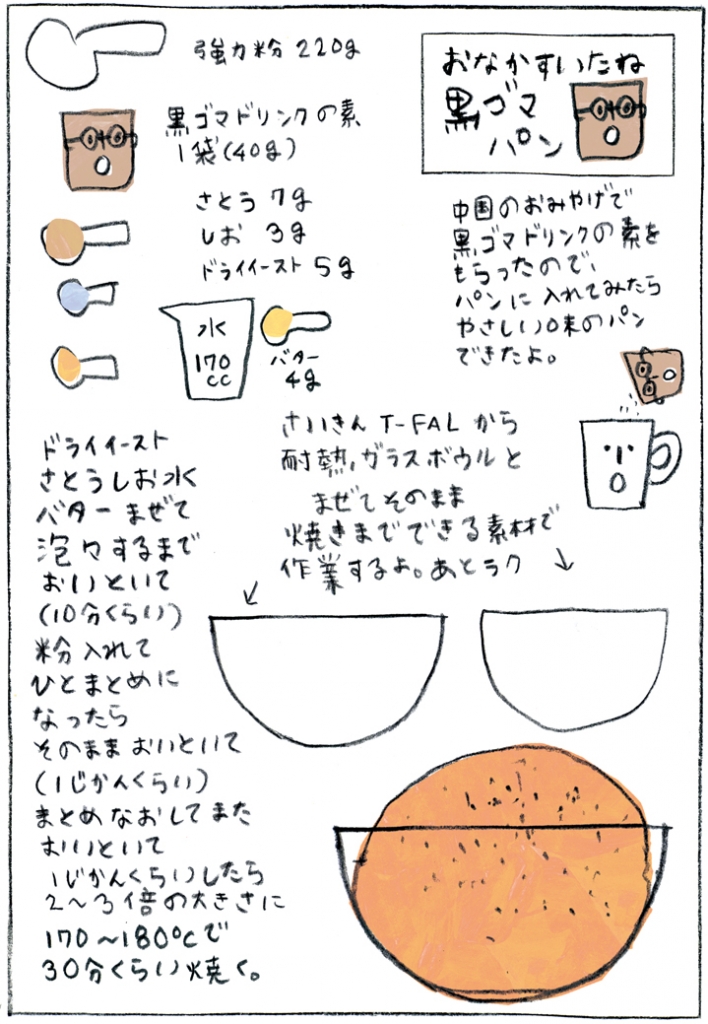 おなかすいたね
黒ゴマ
パン
強力粉 220g
黒ゴマドリンクの素
1袋(40g)
さとう 7g
しお 3g
ドライイースト 5g
水
170
cc
バター
4g
中国のおみやげで
黒ゴマドリンクの素を
もらったので、
パンに入れてみたら
やさしい味のパン
できたよ。
さいきん T-FALから
耐熱ガラスボウルと
まぜてそのまま
焼きまでできる素材で
作業するよ。あとラク
ドライイースト
さとうしお水
バターまぜて
泡々するまで
おいといて
(10分くらい)
粉入れて
ひとまとめに
なったら
そのままおいといて
(1じかんくらい)
まとめなおしてまた
おいといて
1じかんくらいしたら
2〜3倍の大きさに
170〜180℃で
30分くらい焼く。